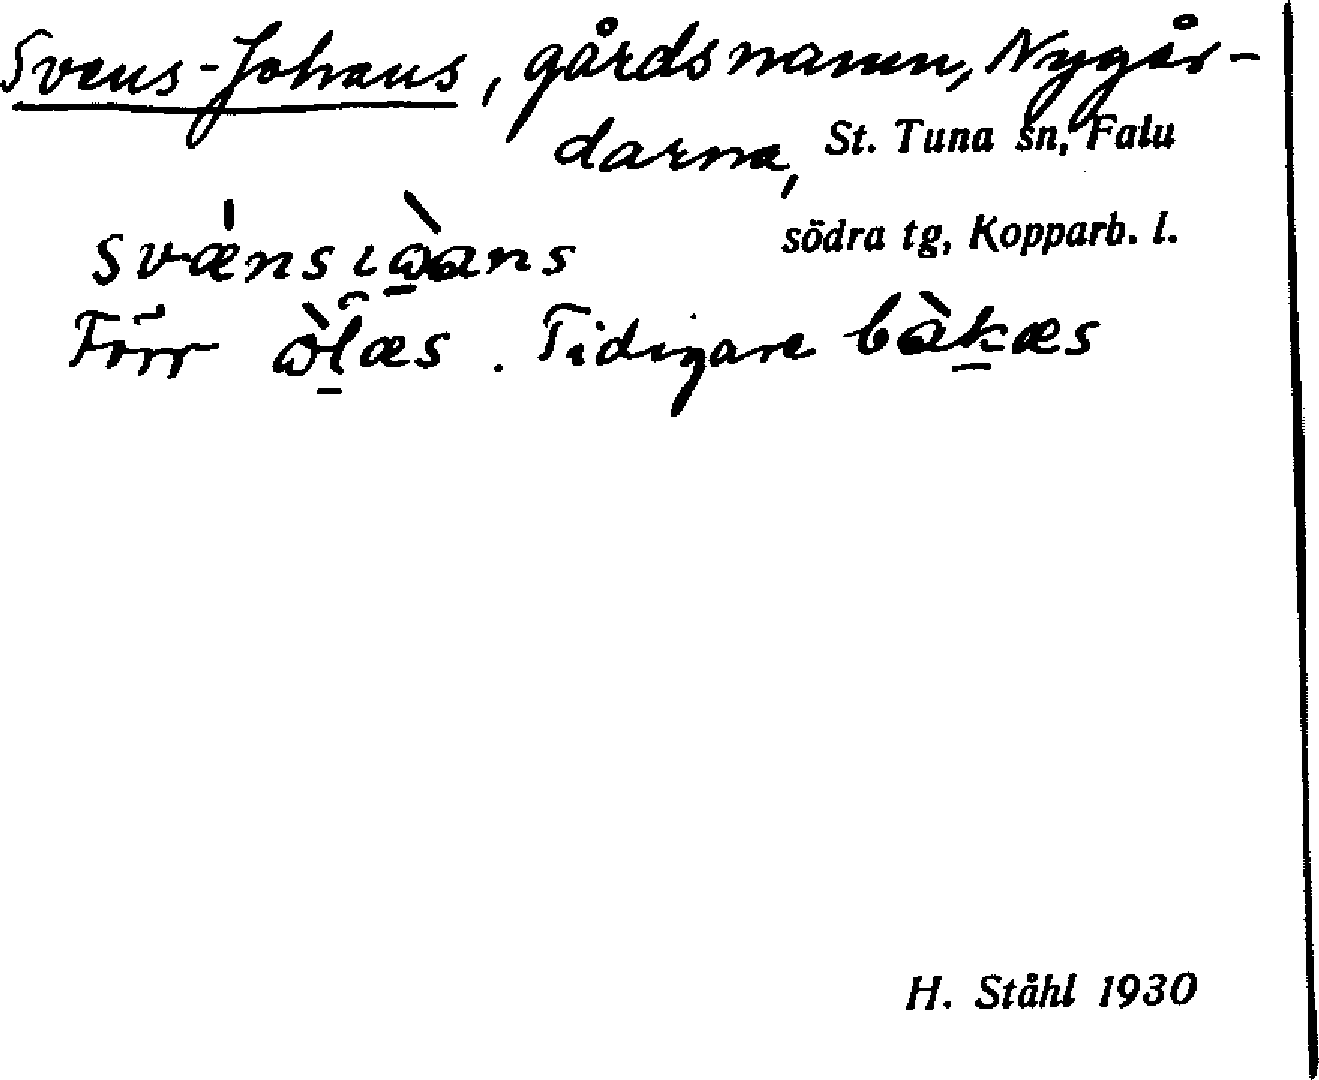 Svens-Johans, gårdsnamn, Nygår-
darna, St. Tuna sn, Falu
södra tg, Kopparb. l.
Förr . Tidigare
H. Ståhl 1930